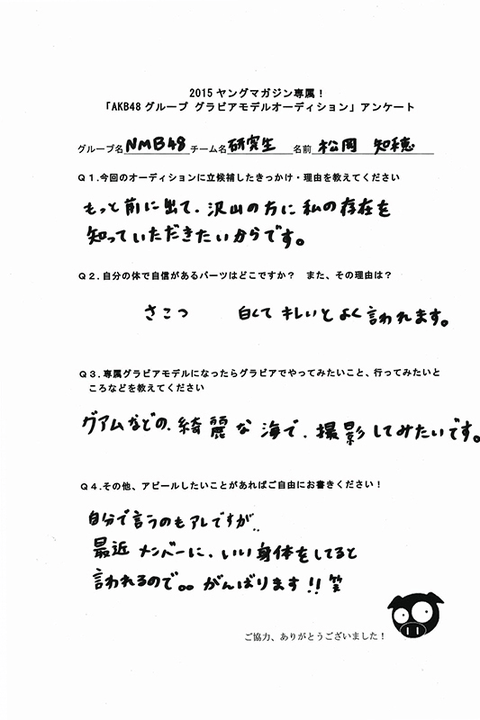 2015 ヤングマガジン専属！
「AKB48 グループ グラビアモデルオーディション」アンケート
グループ名 NMB48 チーム名 研究生 名前 松岡 知穂
Ｑ１.今回のオーディションに立候補したきっかけ・理由を教えてください
もっと前に出て、沢山の方に私の存在を
知っていただきたいからです。
Ｑ２.自分の体で自信があるパーツはどこですか？ また、その理由は？
さこつ 白くて キレいと よく 言われます。
Ｑ３.専属グラビアモデルになったらグラビアでやってみたいこと、行ってみたいと
ころなどを教えてください
グアムなどの、綺麗な海で、撮影してみたいです。
Ｑ４.その他、アピールしたいことがあればご自由にお書きください！
自分で言うのもアレですが..
最近 メンバーに、いい身体をしてると
言われるので。。がんばります!! 笑
ご協力、ありがとうございました！